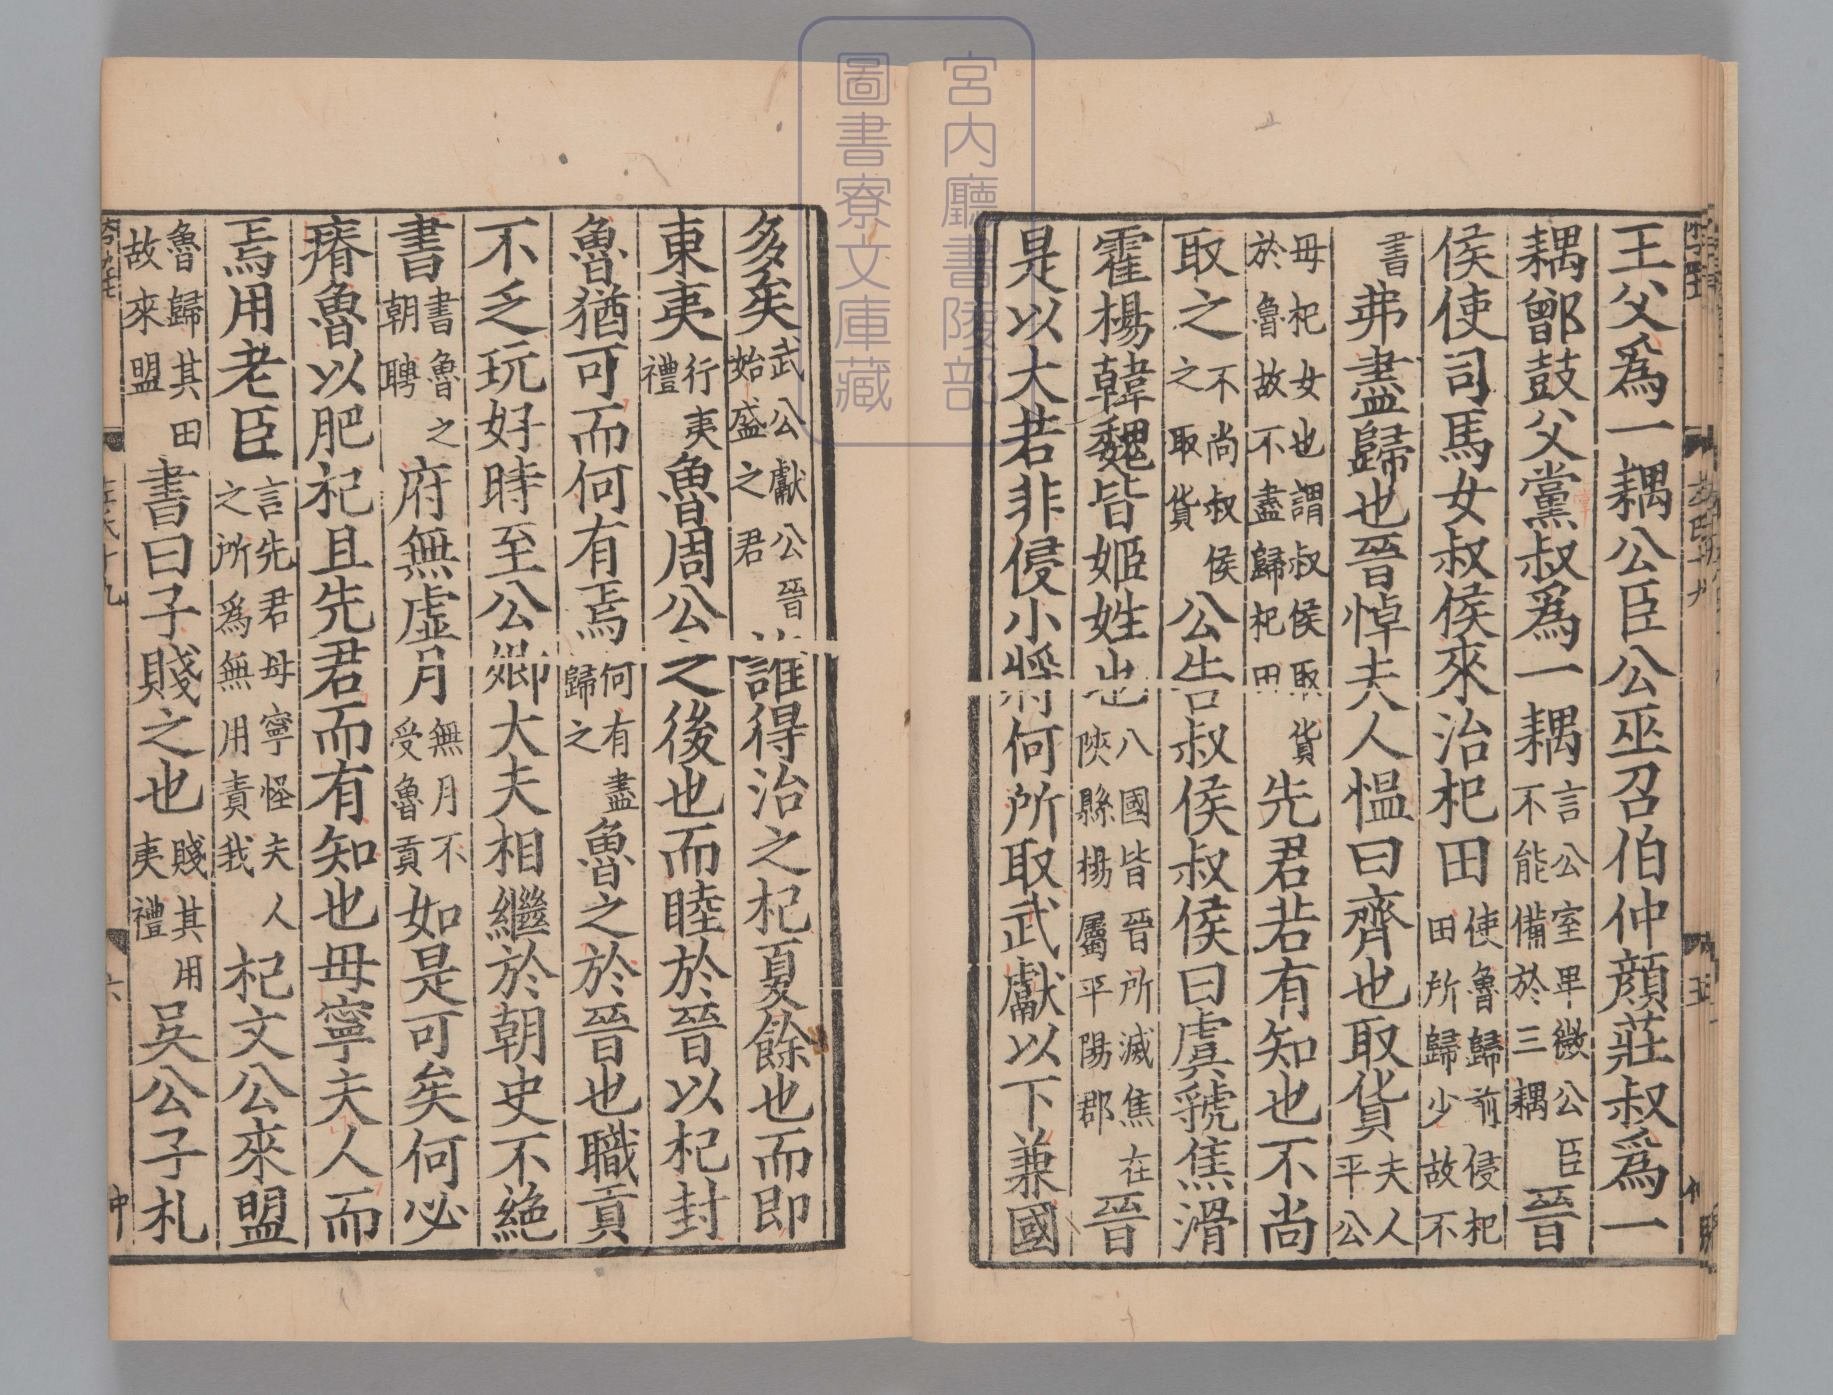 王父爲一耦公臣公巫召伯仲顔莊叔爲一
耦鄫鼓父黨叔爲一耦言公室卑微公臣不能備於三耦晉
侯使司馬女叔侯來治杞田使魯歸前侵杞田所歸少故不
書弗盡歸也晉悼夫人愠曰齊也取貨夫人平公
母杞女也謂叔侯取貨於魯故不盡歸杞田先君若有知也不尚
取之不尚叔侯之取貨公告叔侯叔侯曰虞虢焦滑
霍楊韓魏皆姬姓也八國皆晉所滅焦在陜縣楊屬平陽郡晉
是以大若非侵小將何所取武獻以下兼國
多矣武公獻公晉始盛之君誰得治之杞夏餘也而即
東夷行夷禮魯周公之後也而睦於晉以杞封
魯猶可而何有焉何有盡歸之魯之於晉也職貢
不乏玩好時至公卿大夫相繼於朝史不絶
書書魯之朝聘府無虛月無月不受魯貢如是可矣何必
瘠魯以肥杞且先君而有知也毋寧夫人而
焉用老臣言先君毋寧怪夫人之所爲無用責我杞文公來盟
魯歸其田故來盟書曰子賤之也賤其用夷禮吳公子札
六
宮内廳書陵部
圖書寮文庫藏